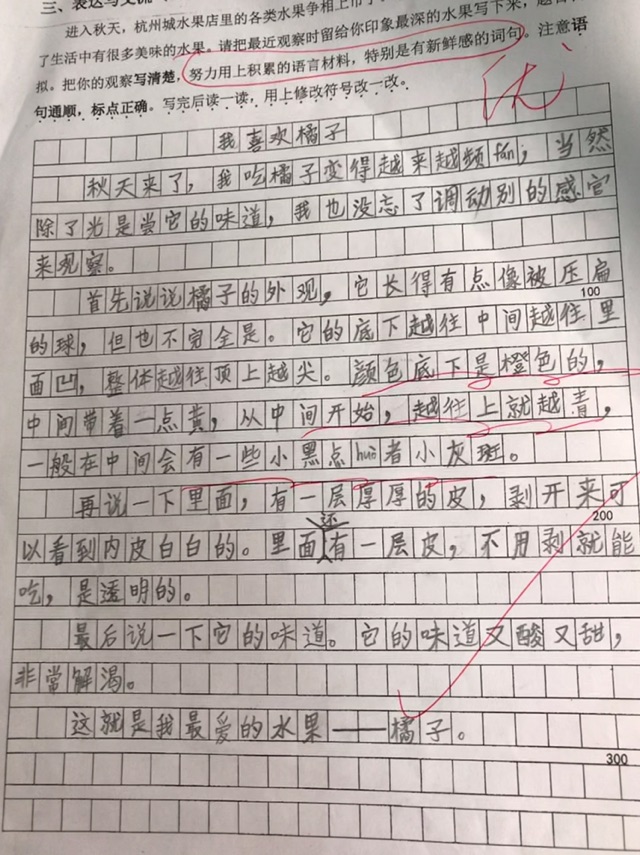 三、表达与交流
进入秋天，杭州城水果店里的各类水果争相上市了
了生活中有很多美味的水果。请把最近观察时留给你印象最深的水果写下来，
拟。把你的观察写清楚，努力用上积累的语言材料，特别是有新鲜感的词句。注意语
句通顺，标点正确。写完后读一读，用上修改符号改一改。
优
我喜欢橘子
秋天来了，我吃橘子变得越来越频fán，当然
除了光是尝它的味道，我也没忘了调动别的感官
来观察。
首先说说橘子的外观，它长得有点像被压扁
100
的球，但也不完全是。它的底下越往中间越往里
面凹，整体越往顶上越尖。颜色底下是橙色的，
中间带着一点黄，从中间开始，越往上就越青，
一般在中间会有一些小黑点huò者小灰斑。
再说一下里面，有一层厚厚的皮，剥开来可
200
以看到内皮白白的。里面还有一层皮，不用剥就能
吃，是透明的。
最后说一下它的味道。它的味道又酸又甜，
非常解渴。
这就是我最爱的水果——橘子。
300